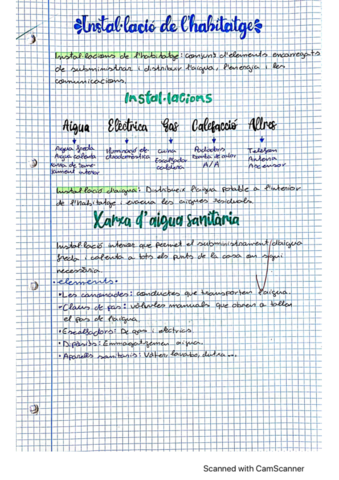 Instal·lació de l'habitatge
Instal·lacions de l'habitatge: conjunt d'elements encarregats
de subministrar i distribuir l'aigua, l'energia i les
comunicacions.
Instal·lacions
Aigua Elèctrica Gas Calefacció Altres
Aigua freda Il·luminació de cuina Radiadors Telèfon
Aigua calenta domòtica Escalfador bomba de calor Antena
interior calderia A/A Ascensor
Instal·lació d'aigua: Distribueix l'aigua potable a l'interior
de l'habitatge i evacua les aigües residuals.
Xarxa d'aigua sanitària
Instal·lació interior que permet el subministrament d'aigua
freda i calenta a tots els punts de la casa on sigui
necessària.
·elements:
·Les canonades: conductes que transporten l'aigua.
·Claus de pas: vàlvules manuals que obren o tallen
el pas de l'aigua.
·Escalfadors: De gas i elèctrics
·Dipòsits: Emmagatzemen aigua.
·Aparells sanitaris: Vàter, lavabo, dutxa...
Scanned with CamScanner